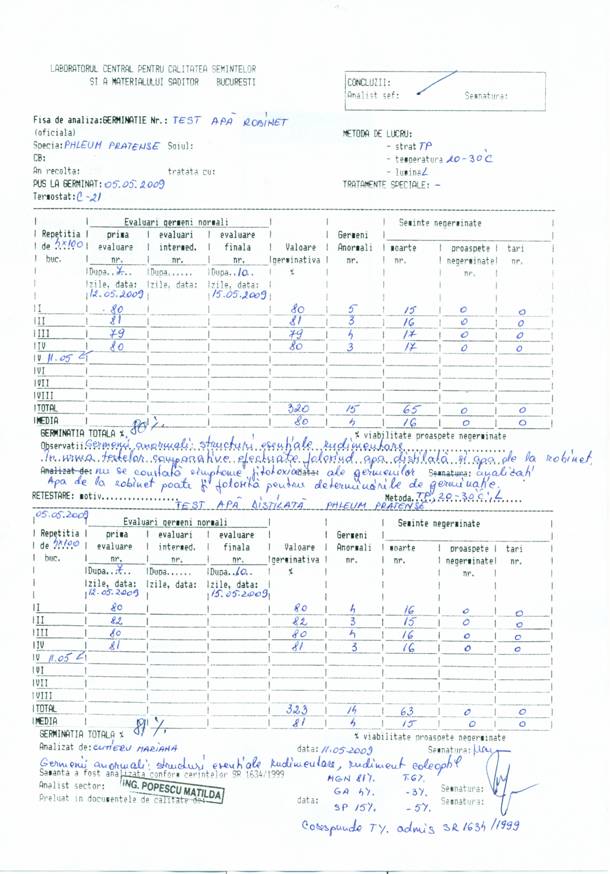 LABORATORUL CENTRAL PENTRU CALITATEA SEMINTELOR
SI A MATERIALULUI SADITOR BUCURESTI
CONCLUZII:
Analist sef: Semnatura:
Fisa de analiza:GERMINATIE Nr.: TEST APĂ ROBINET
(oficiala)
METODA DE LUCRU:
Specia: PHLEUM PRATENSE Soiul:
- strat TP
CB:
- temperatura 20-30°C
An recolta: tratata cu:
- lumina L
PUS LA GERMINAT: 05.05.2009
TRATAMENTE SPECIALE: -
Termostat: C-21
Evaluari germeni normali Seminte negerminate
Repetitia prima evaluari evaluare Valoare Germeni moarte proaspete tari
de 4x100 evaluare intermed. finala germinativa Anormali nr. negerminate nr.
buc. nr. nr. nr. % nr. nr.
Dupa..7.. Dupa...... Dupa..10..
zile, data: zile, data: zile, data:
12.05.2009 15.05.2009
I 80 80 5 15 0 0
II 81 81 3 16 0 0
III 79 79 4 17 0 0
IV 80 80 3 17 0 0
V 11.05
VI
VII
VIII
TOTAL 320 15 65 0 0
MEDIA 80 4 16 0 0
GERMINATIA TOTALA % 80% % viabilitate proaspete negerminate
Observatii Germenii anormali: structuri esenţiale rudimentare
In urma testelor comparative efectuate folosind apa distilată şi apa de la robinet,
Analizat de: nu se constată simptome fitotoxice data: ale germenilor Semnatura: analizaţi
Apa de la robinet poate fi folosită pentru determinările de germinaţie.
RETESTARE: motiv.................. Metoda. TP, 20-30°C, L
TEST APĂ DISTILATĂ PHLEUM PRATENSE
05.05.2009
Evaluari germeni normali Seminte negerminate
Repetitia prima evaluari evaluare Valoare Germeni moarte proaspete tari
de 4x100 evaluare intermed. finala germinativa Anormali nr. negerminate nr.
buc. nr. nr. nr. % nr. nr.
Dupa..7.. Dupa...... Dupa..10..
zile, data: zile, data: zile, data:
12.05.2009 15.05.2009
I 80 80 4 16 0 0
II 82 82 3 15 0 0
III 80 80 4 16 0 0
IV 81 81 3 16 0 0
V 11.05
VI
VII
VIII
TOTAL 323 14 63 0 0
MEDIA 81 4 15 0 0
GERMINATIA TOTALA % 81% % viabilitate proaspete negerminate
Analizat de: MARIANA data: 11.05.2009 Semnatura:
Germenii anormali: structuri esenţiale rudimentare, rudiment coleoptil
Samanta a fost analizata conform cerintelor SR 1634/1999
MGN 81% T.6%
Analist sector: ING. POPESCU MATILDA
GA 4% -3% Semnatura:
Preluat in documentele de calitate de: data: SP 15% -5% Semnatura:
Corespunde T%. admis SR 1634/1999